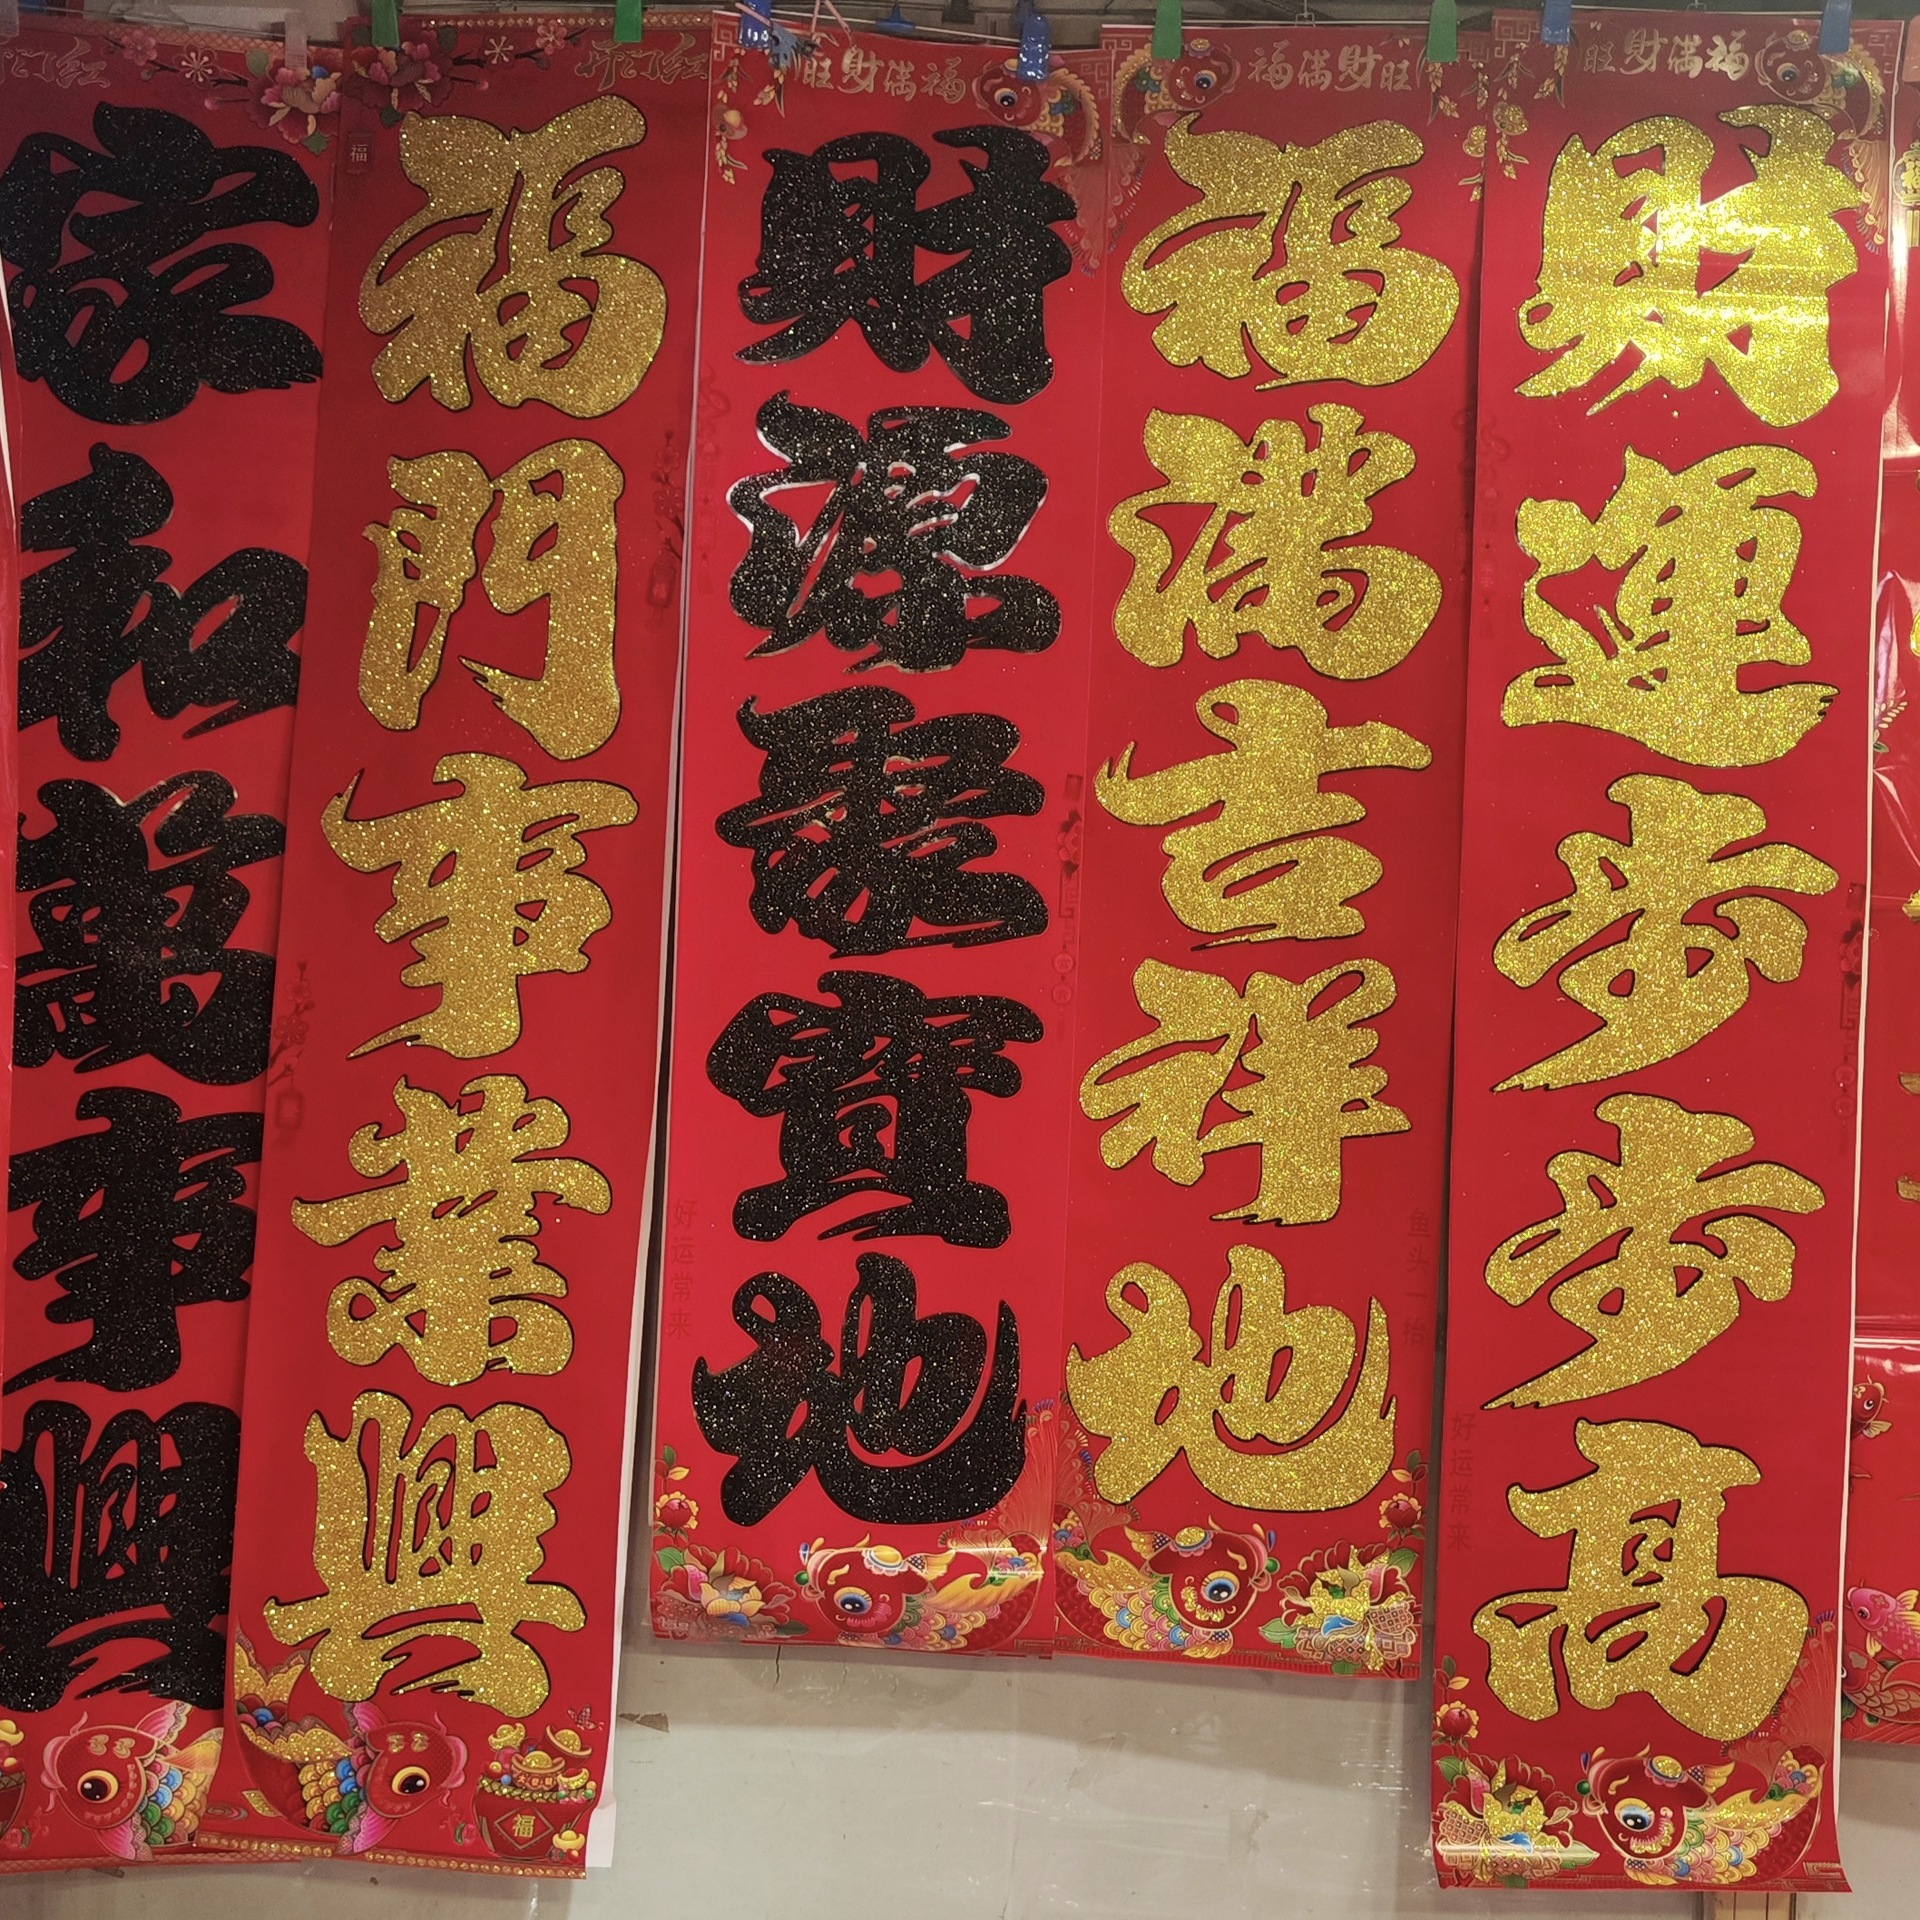 家和萬事興
開门红
福門事業興
福
旺財满福
財源聚寶地
好运常来
福满財旺
福满吉祥地
鱼头一抬
旺財满福
財運步步高
好运常来
福